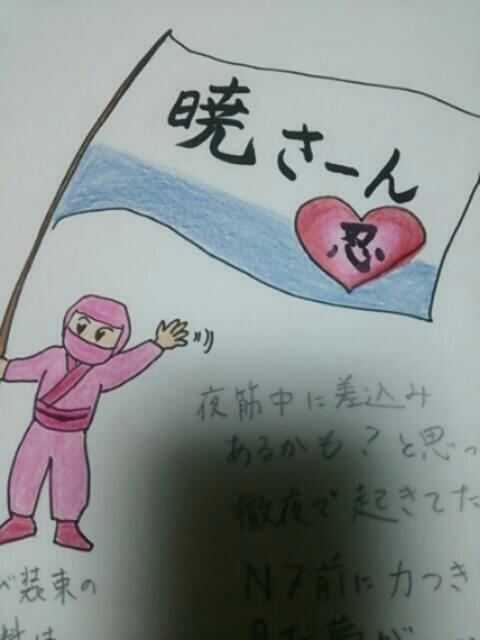 暁さーん
忍
夜節中に差込み
あるかも？と思っ
徹夜で起きてた
N7前に力つき
装束の